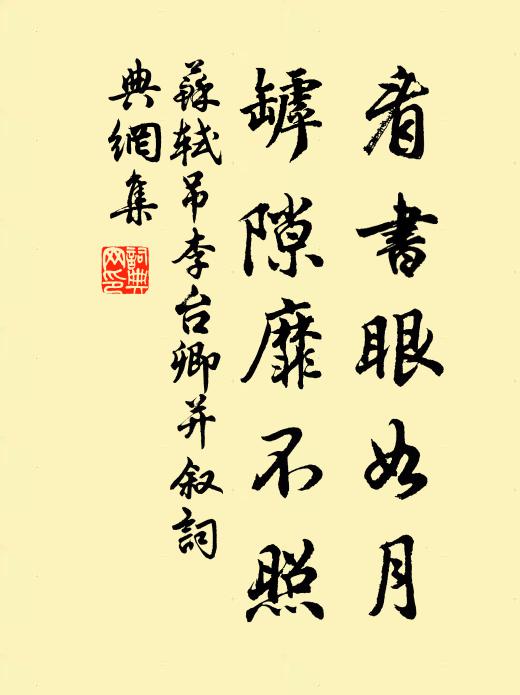 看書眼如月
罅隙靡不照
蘇軾吊李台卿并叙詞
典網集
詞典
网印